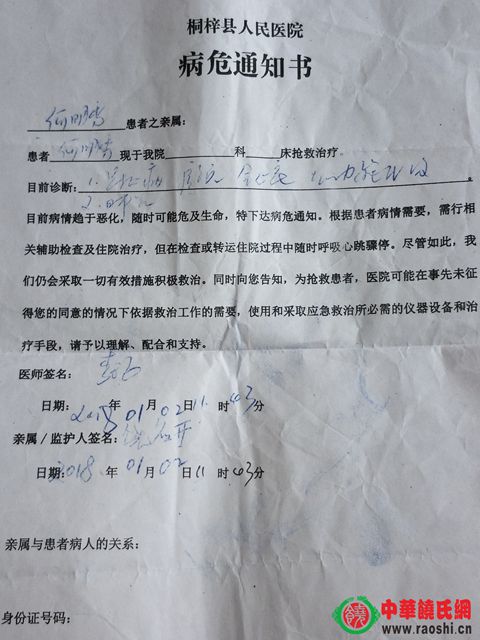 桐梓县人民医院
病危通知书
何明 患者之亲属：
患者 何明 现于我院 科 床抢救治疗。
目前诊断：1. 心力衰
2.
目前病情趋于恶化，随时可能危及生命，特下达病危通知。根据患者病情需要，需行相
关辅助检查及住院治疗，但在检查或转运住院过程中随时呼吸心跳骤停。尽管如此，我
们仍会采取一切有效措施积极救治。同时向您告知，为抢救患者，医院可能在事先未征
得您的同意的情况下依据救治工作的需要，使用和采取应急救治所必需的仪器设备和治
疗手段，请予以理解、配合和支持。
医师签名：
日期：2018年01月02日11时43分
亲属/监护人签名：
日期：2018年01月02日11时43分
亲属与患者病人的关系：
身份证号码：
中華饒氏網
www.raoshi.cn